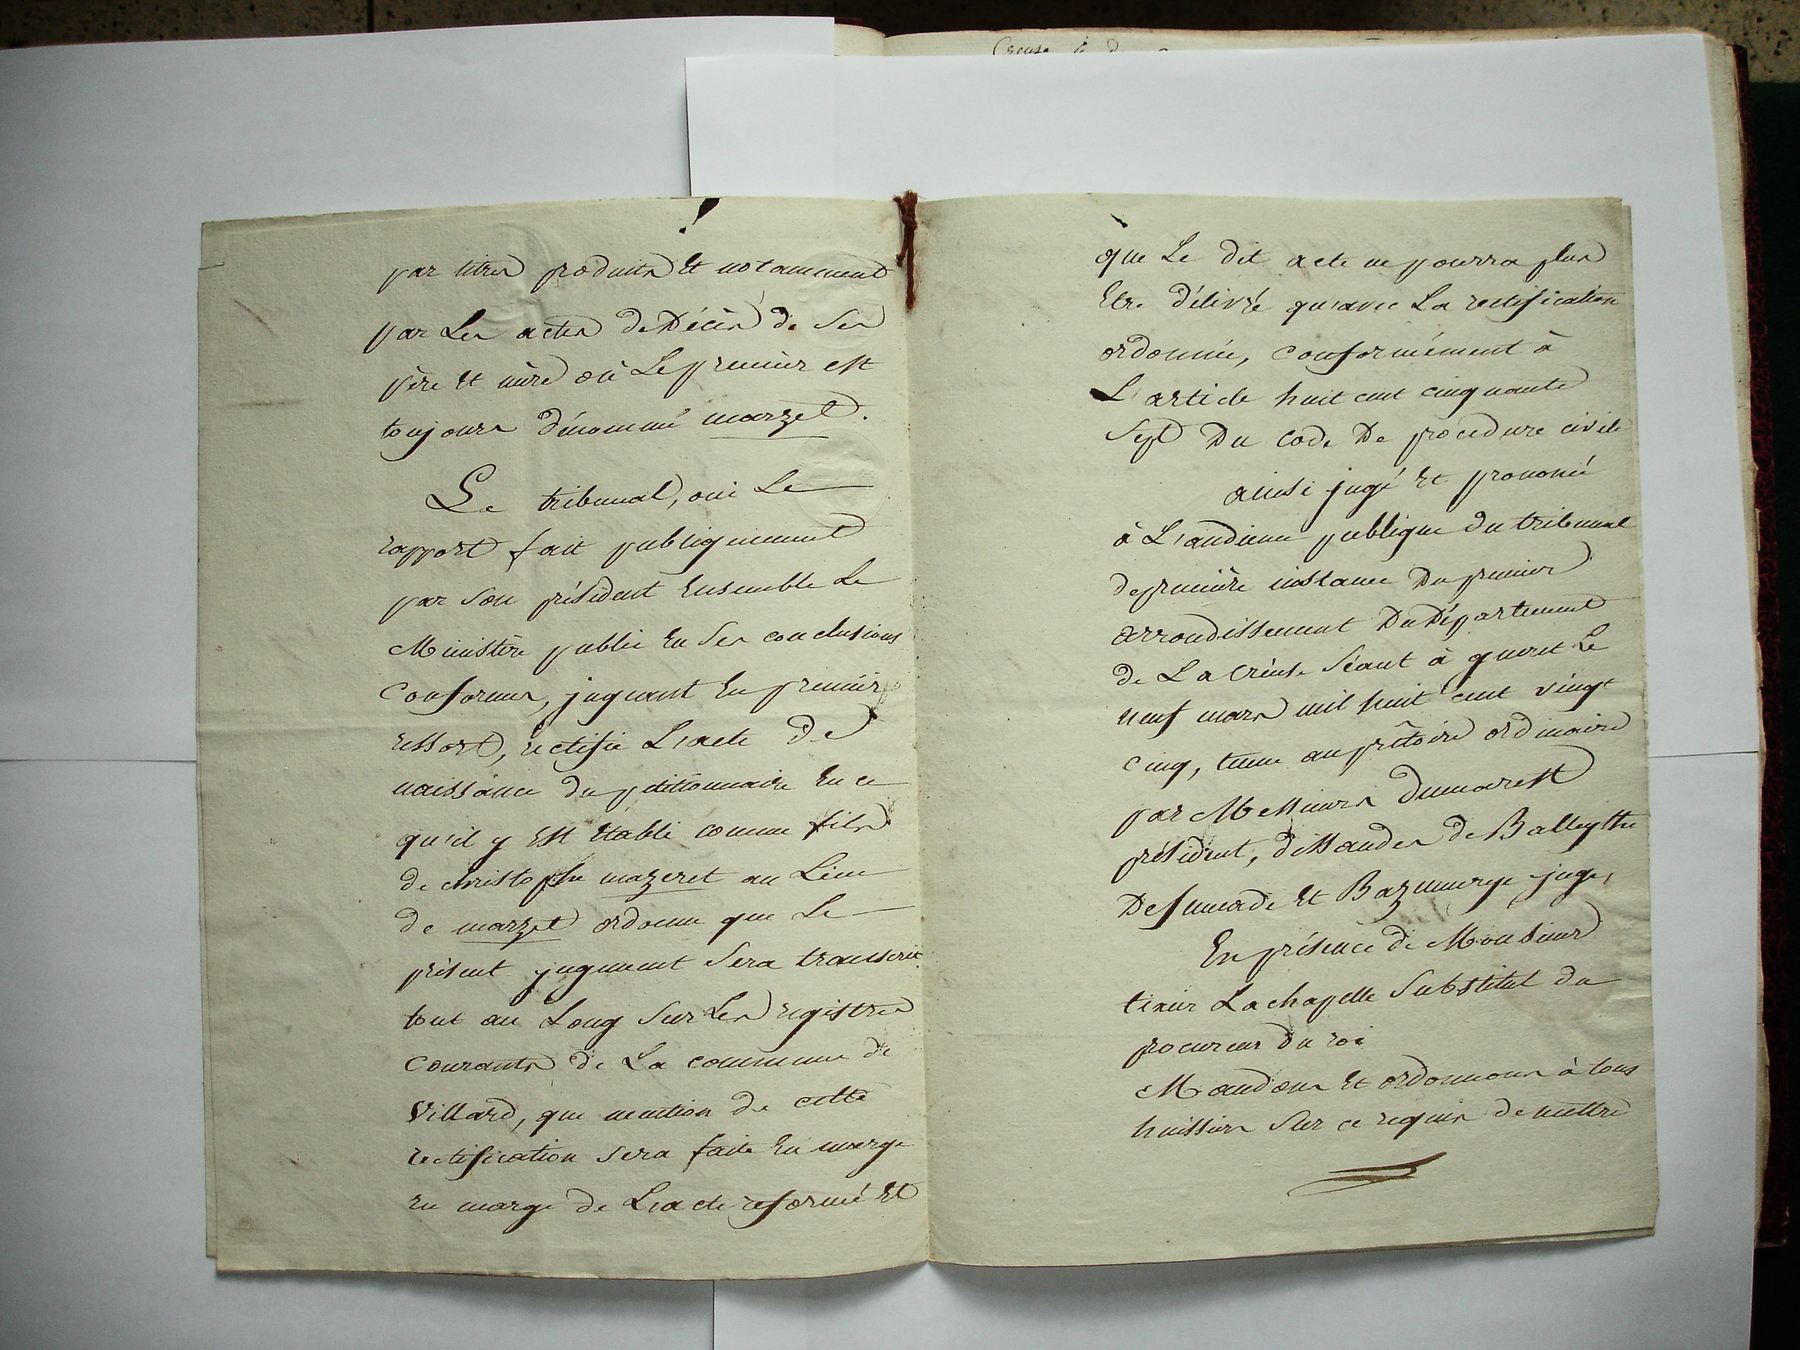 par titres produits Et notamment
par Les actes de Décès de Ses
père Et mère où Le premier est
toujours dénommé marzet.
Le tribunal, oui Le
rapport fait publiquement
par Son président Ensemble Le
Ministère public En Ses conclusions
Conformes, jugeant En premier
ressort, rectifie L'acte de
naissance du pétitionnaire En ce
qu'il y Est Etabli comme fils
de christophe mazeret au Lieu
de marzet ordonne que Le
présent jugement Sera transcrit
tout au Long Sur Les registres
Courants de La commune de
Villard, que mention de cette
rectification sera faite En marge
En marge de L'acte reformé Et
que Le dit acte ne pourra plus
Etre délivré qu'avec La rectification
ordonnée, conformément à
L'article huit cent cinquante
Sept Du code De procedure civile
ainsi jugé Et prononcé
à L'audience publique du tribunal
de première instance Du premier
arrondissement Du Département
de La Creuse Séant à gueret Le
neuf mars mil huit cent vingt
cinq, tenue au prétoire ordinaire
par Messieurs Dumarest
président, de Balleythe
Et juges,
En présence de Monsieur
Lachapelle Substitut du
procureur Du roi
Mandons Et ordonnons à tous
huissiers Sur ce requis de mettre